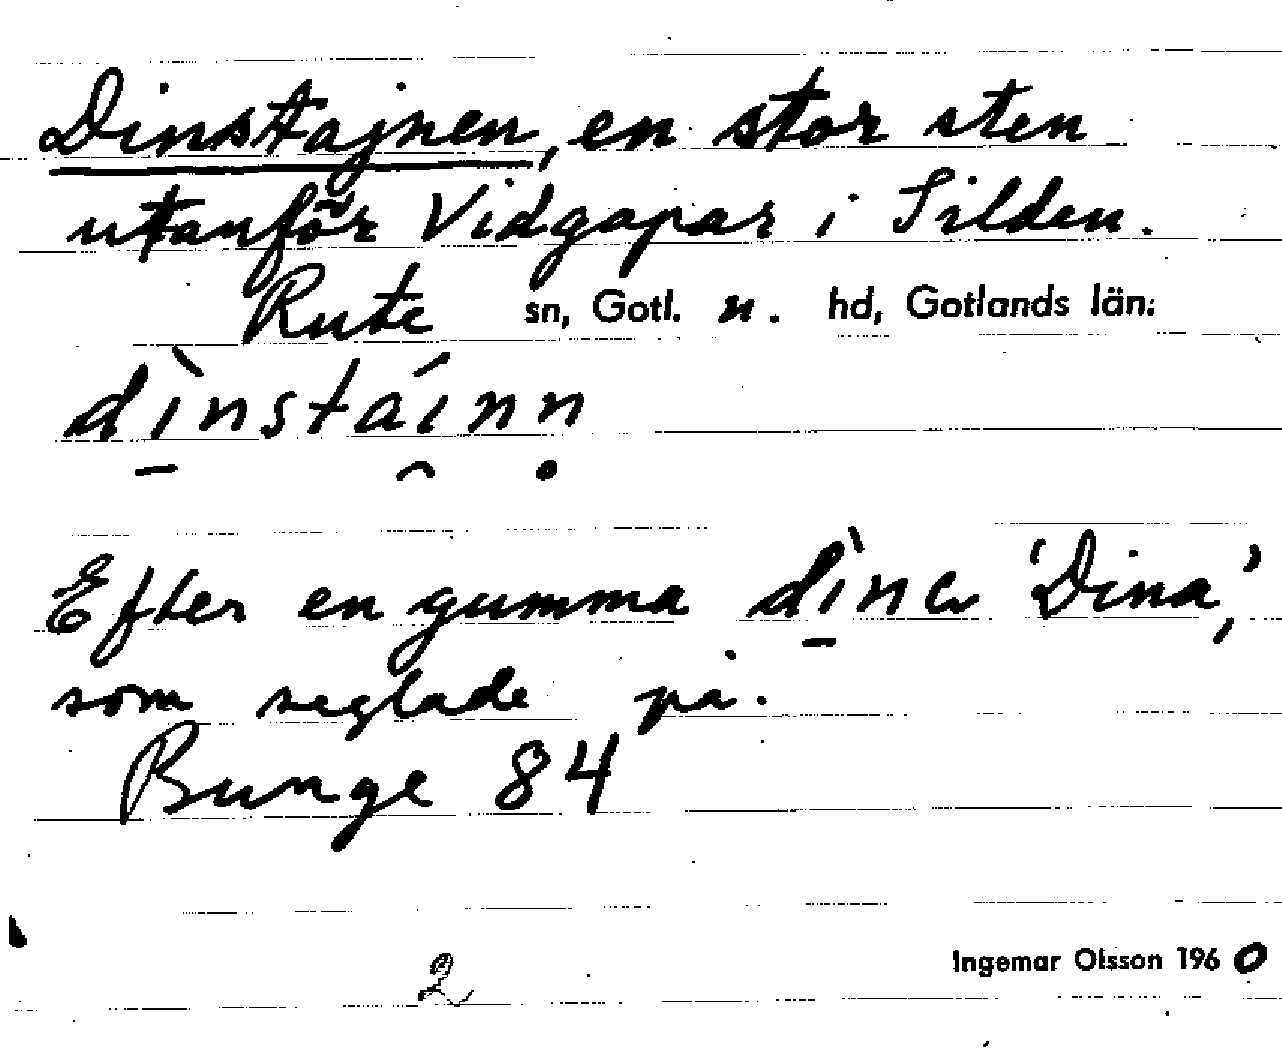 Dinstajnen, en stor sten
utanför Vidgapar i Silden.
Rute sn, Gotl. n. hd, Gotlands län:
dìnstáinn
Efter en gumma dìna 'Dina',
som seglade på.
Bunge 84
2
Ingemar Olsson 1960